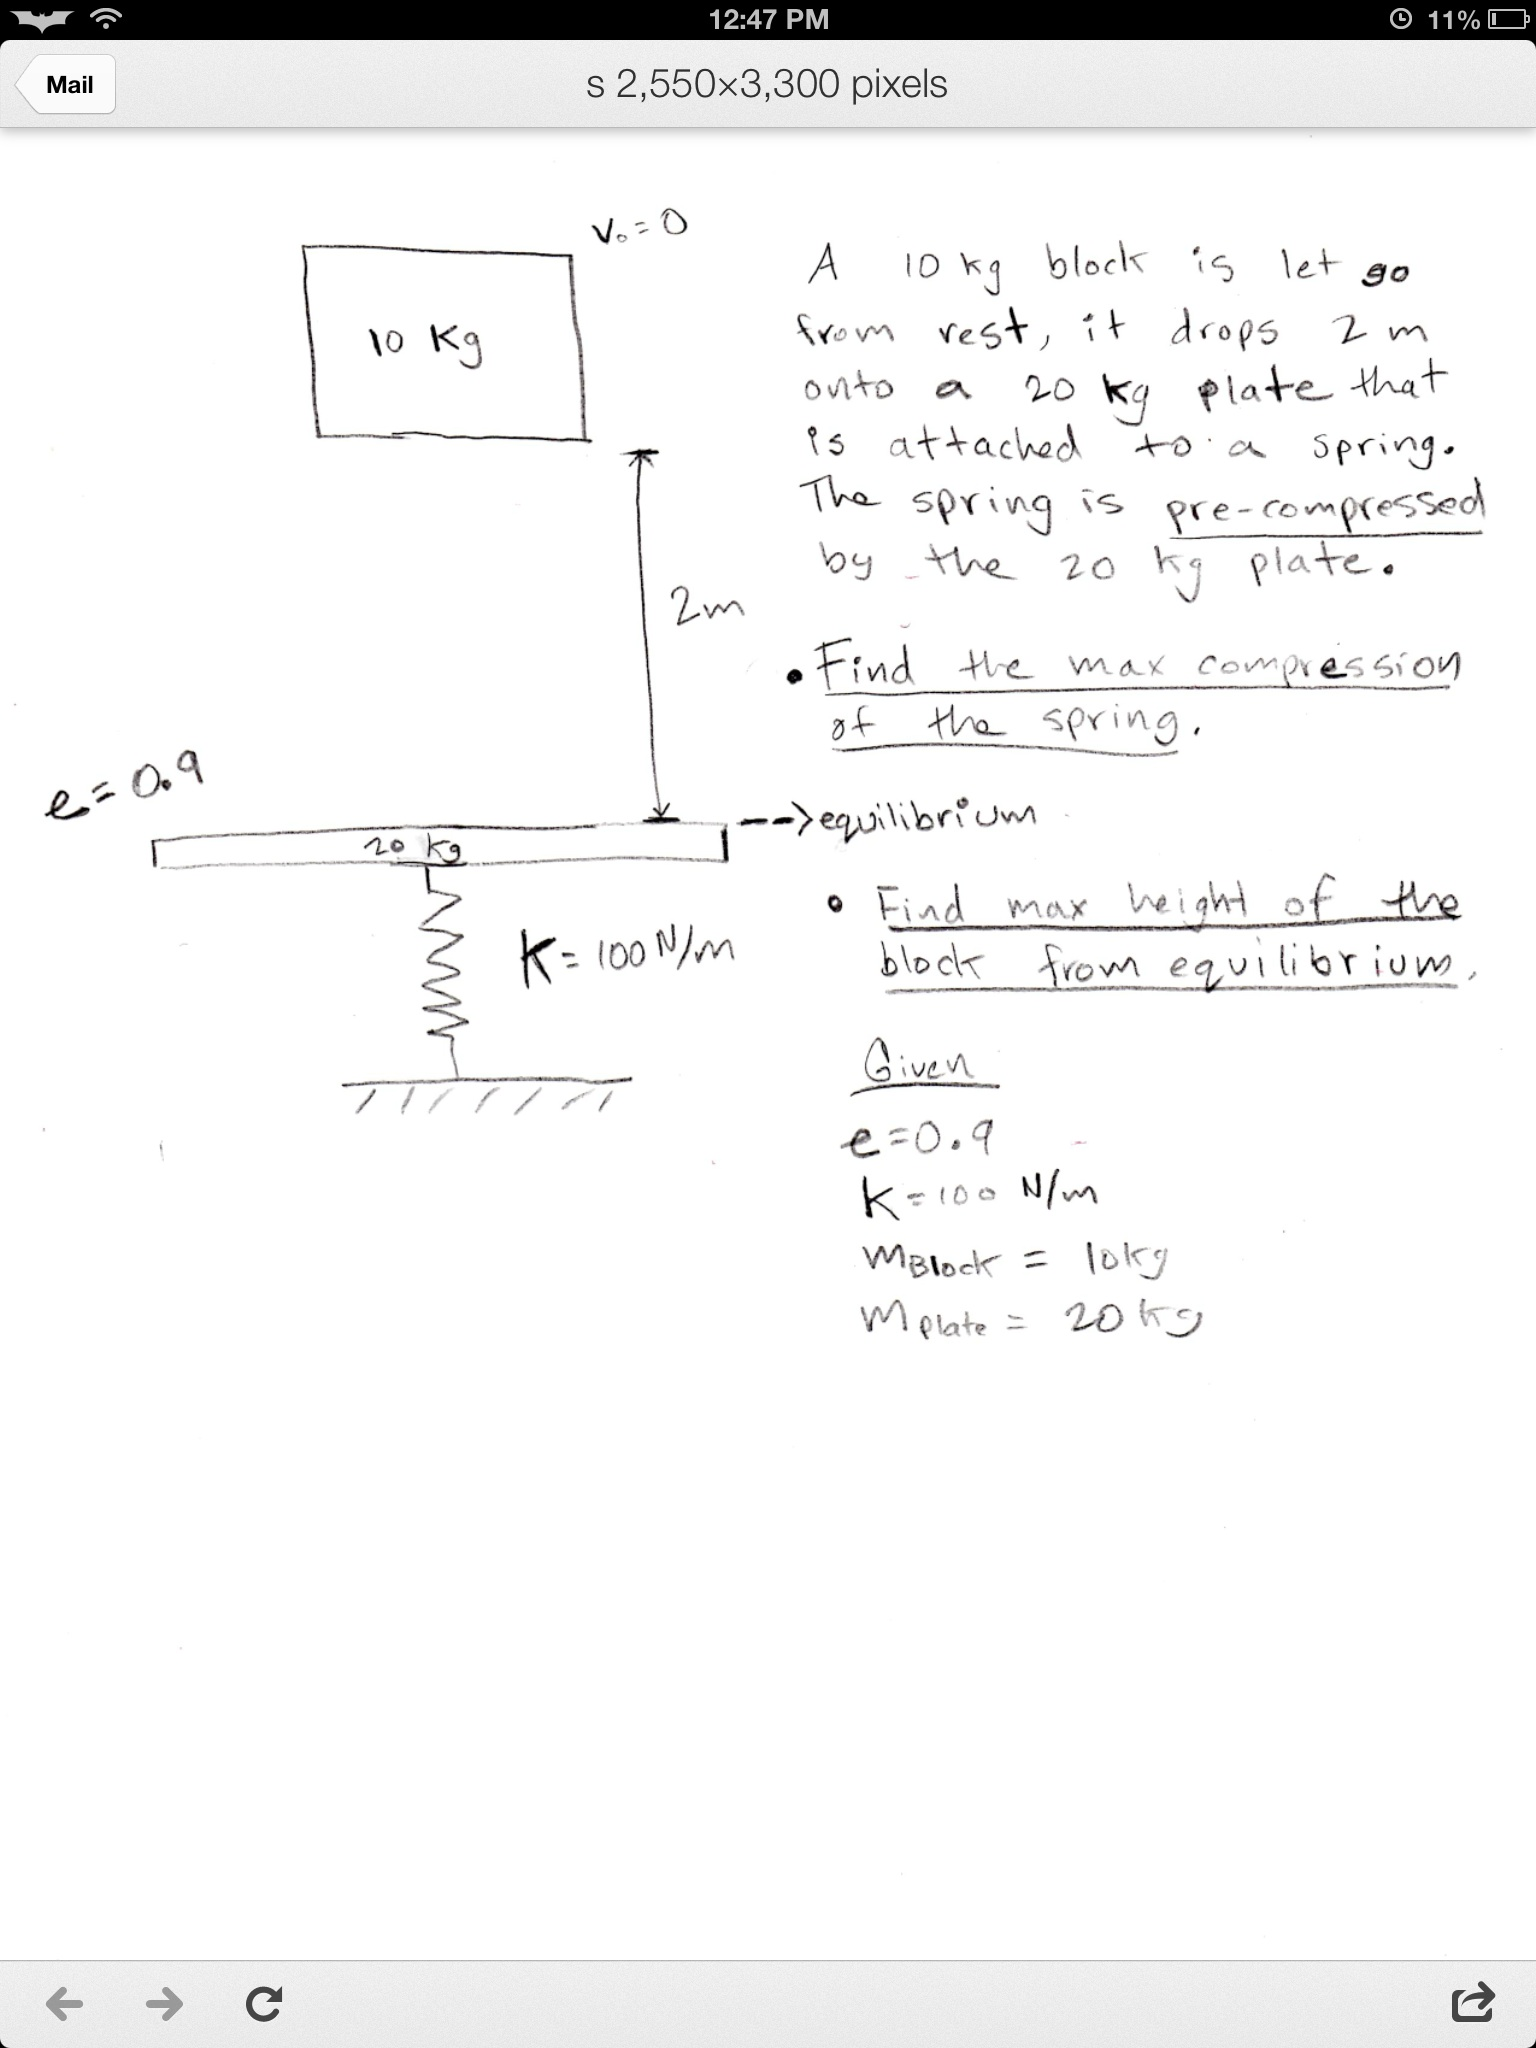 12:47 PM
11%
Mail
s 2,550×3,300 pixels
V₀ = 0
10 Kg
A 10 kg block is let go
from rest, it drops 2 m
onto a 20 kg plate that
is attached to a spring.
The spring is pre-compressed
by the 20 kg plate.
2m
• Find the max compression
of the spring.
e = 0.9
-->equilibrium
20 kg
K = 100 N/m
• Find max height of the
block from equilibrium.
Given
e = 0.9
K = 100 N/m
mBlock = 10kg
mplate = 20 kg